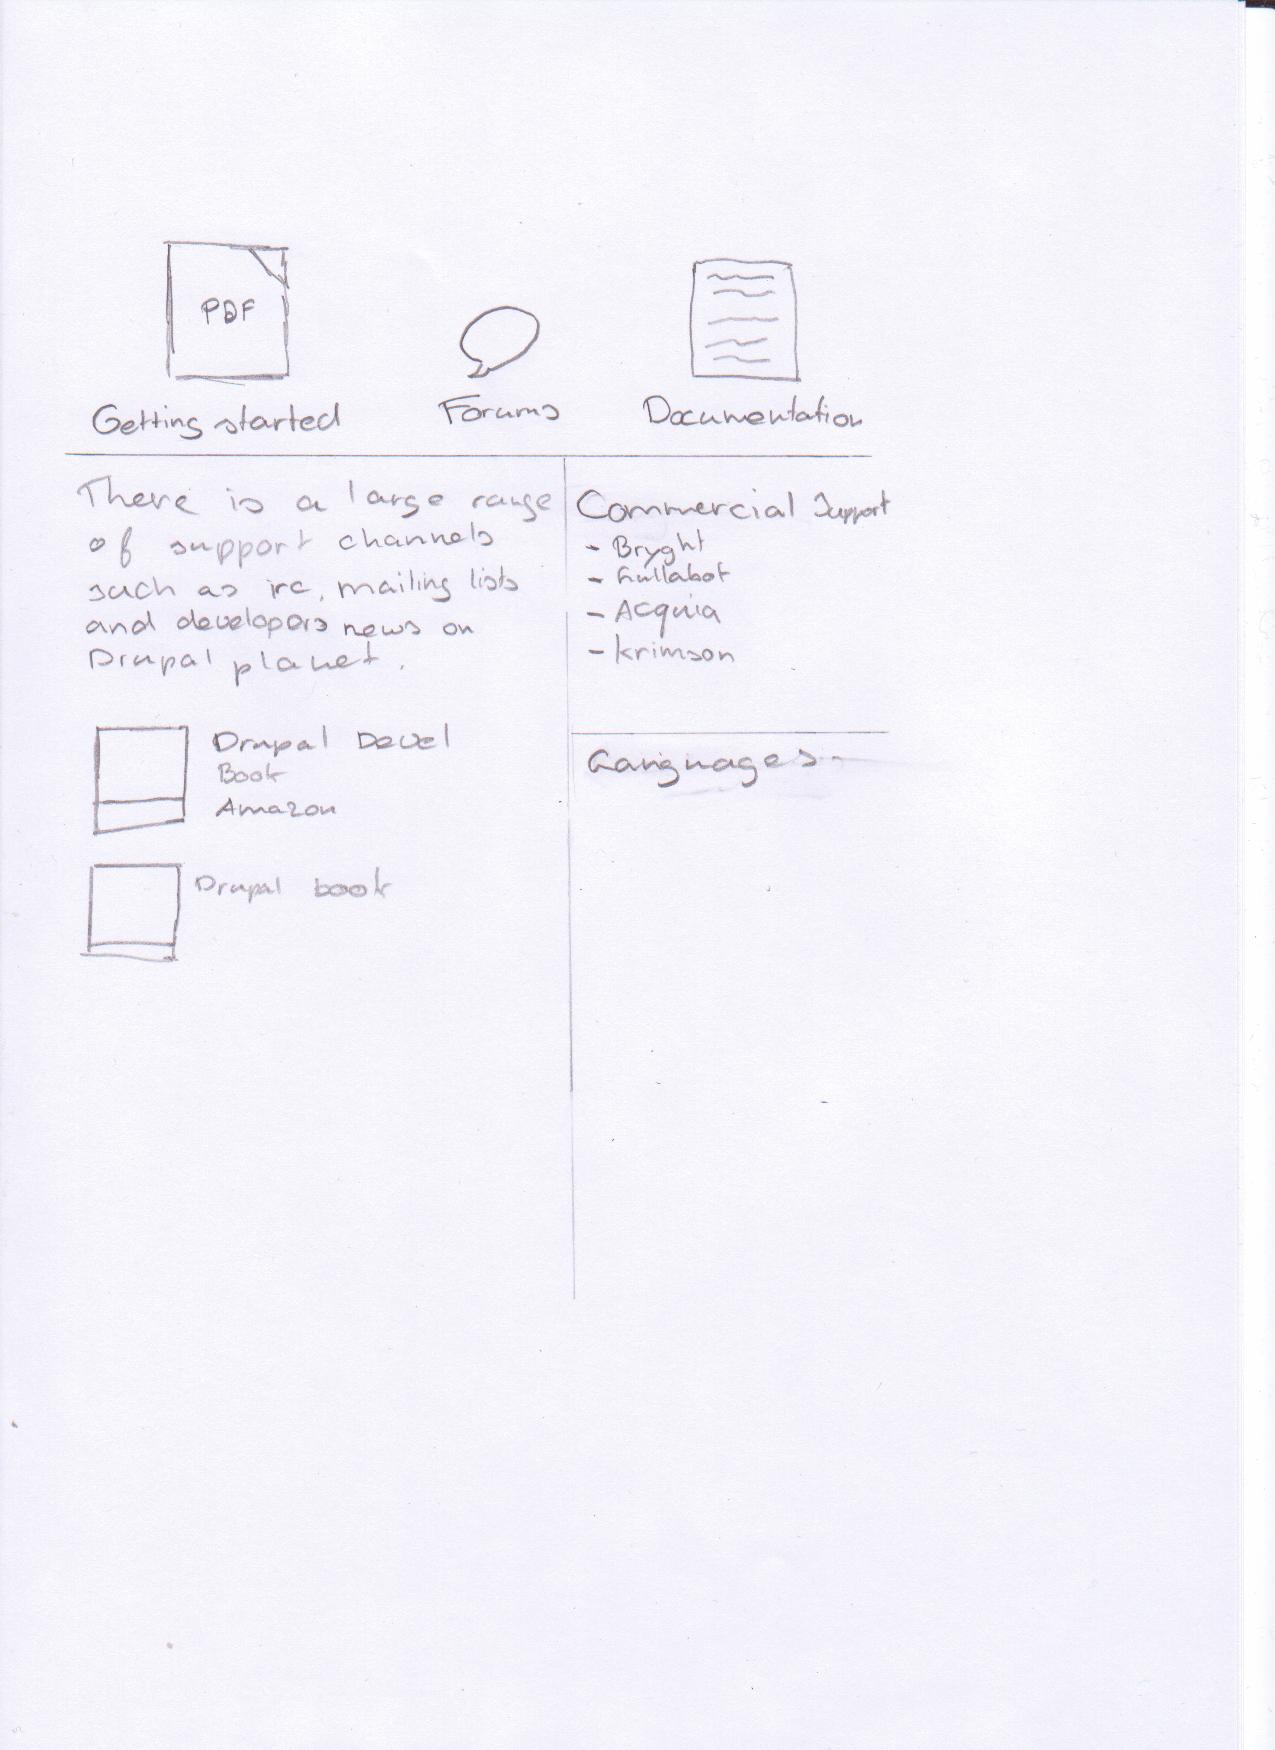 PDF
Getting started
Forums
Documentation
There is a large range
of support channels
such as irc, mailing lists
and developers news on
Drupal planet.
Drupal Devel
Book
Amazon
Drupal book
Commercial Support
- Bryght
- Lullabot
- Acquia
- krimson
Languages